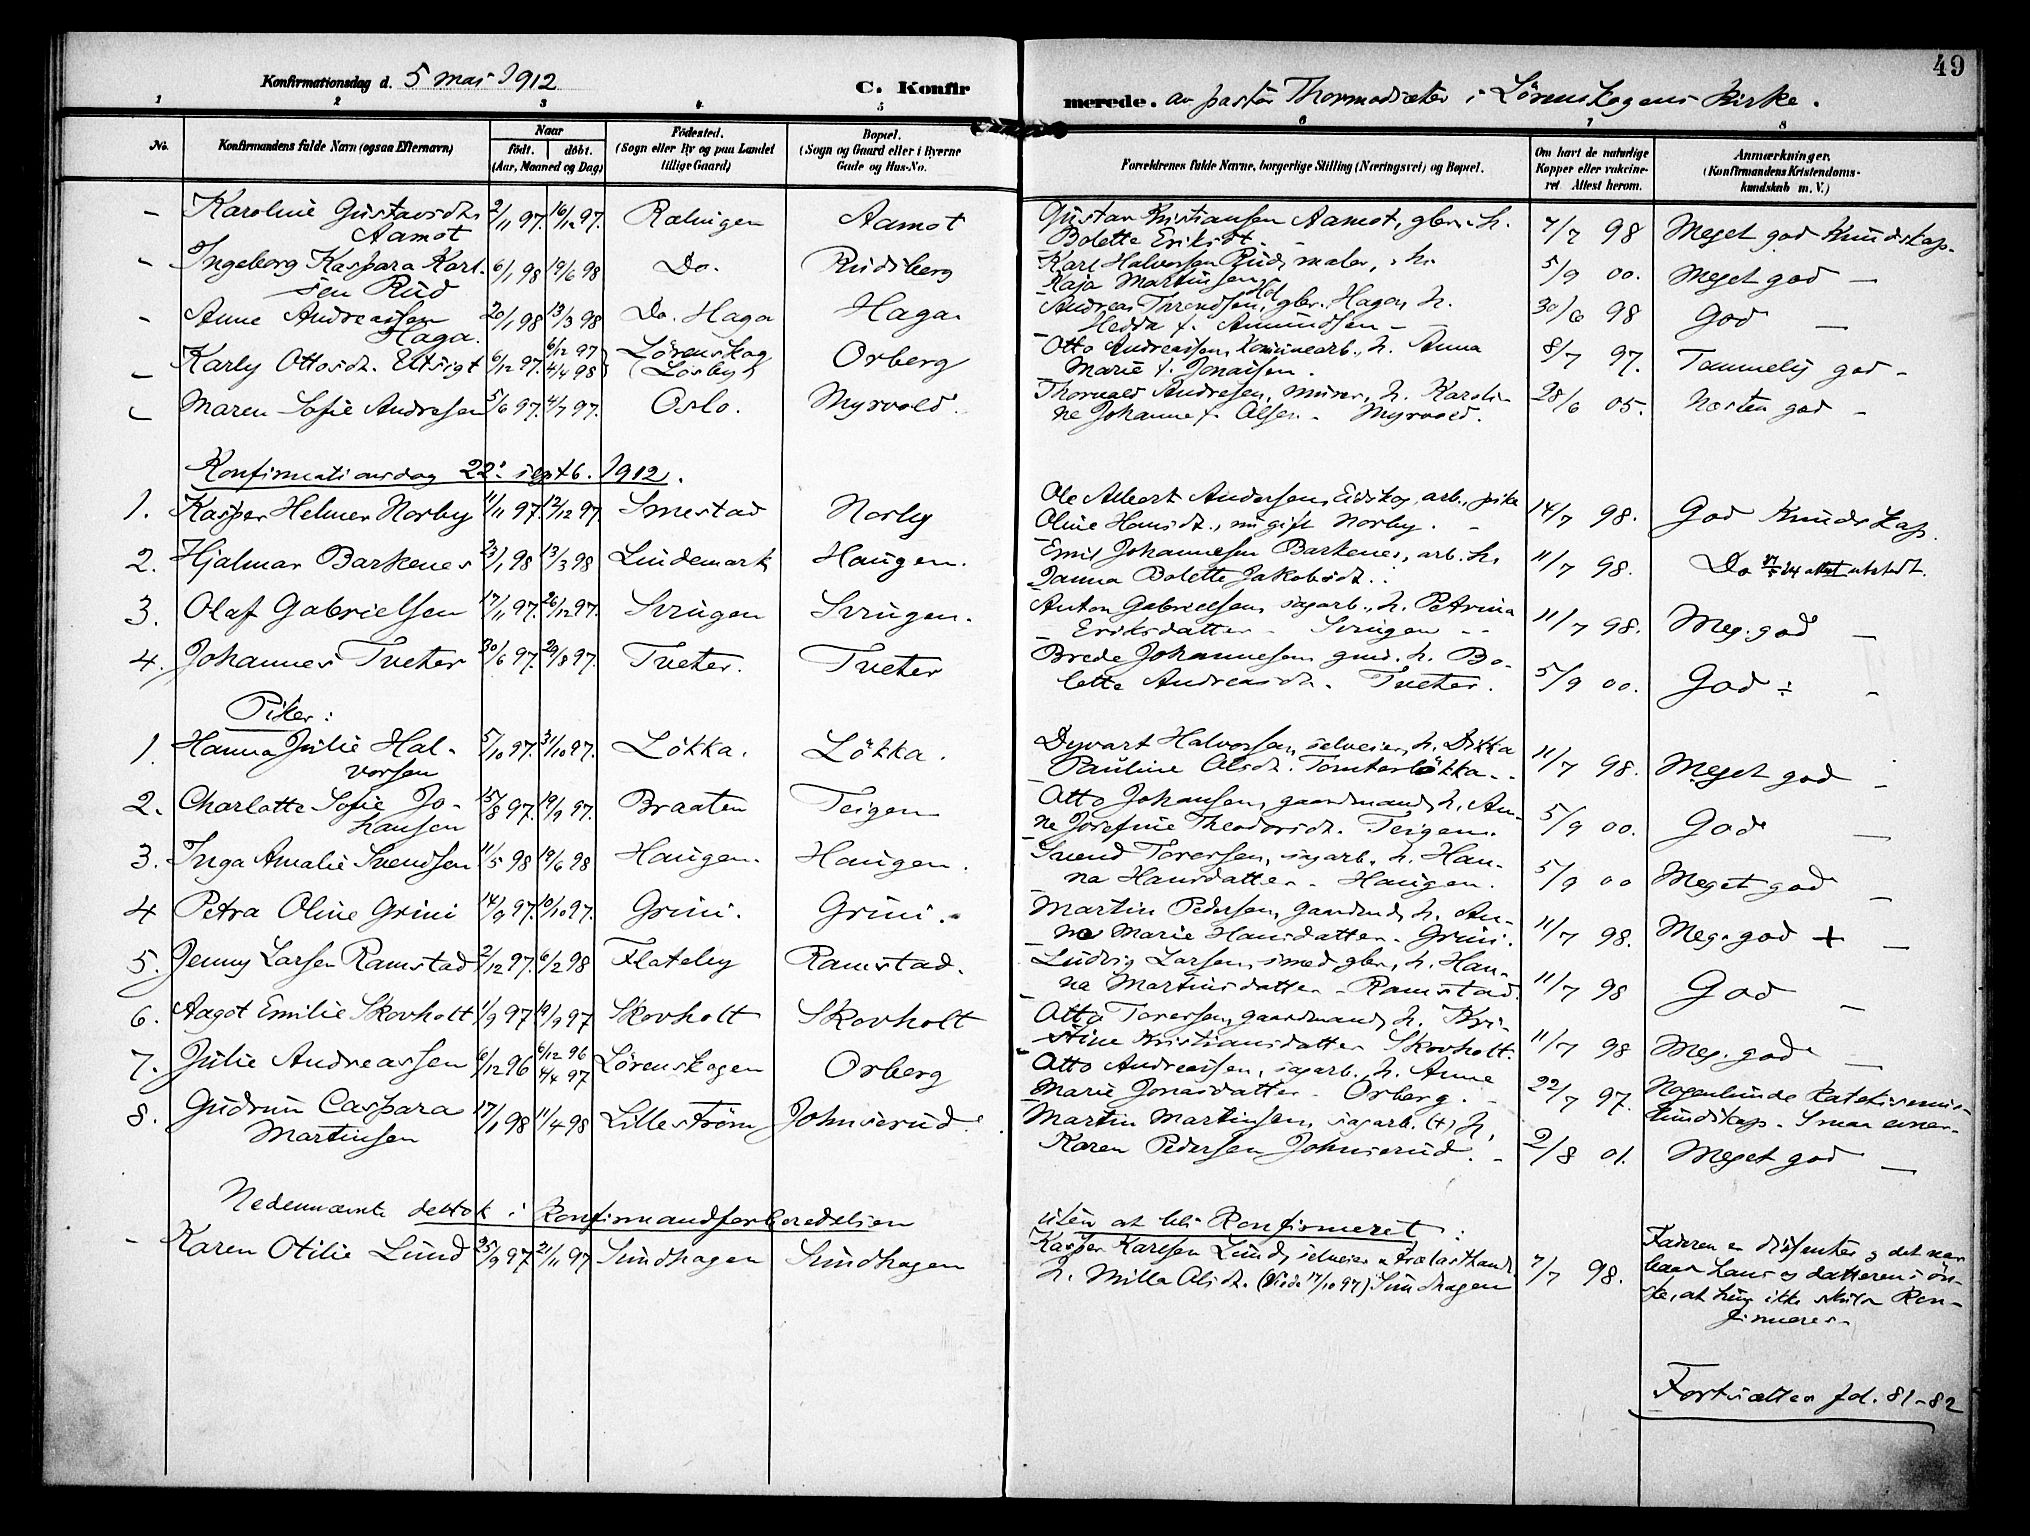 49
Konfirmationsdag d. 5 mai 1912
C. Konfirmerede. av pastor i Lörenskogens Kirke.
1 2 3 4 5 6 7 8
No. Konfirmandens fulde Navn (ogsaa Efternavn) Naar født. døbt. (Aar, Maaned og Dag) Fødested. (Sogn eller By og paa Landet tillige Gaard) Bopæl. (Sogn og Gaard eller i Byerne Gade og Hus-No.
Forældrenes fulde Navne, borgerlige Stilling (Næringsvei) og Bopæl. Om havt de naturlige Kopper eller vakcineret Attest herom. Anmærkninger. (Konfirmandens Kristendomskundskab m. V.)
- Karoline Gustavsdt. Aamot 2/11 97. 16/12 97. Rælingen Aamot Gustav Kristiansen Aamot, gbr. h. Bolette Eriksdt. - 7/7 98 Meget god Kundskap.
- Ingeborg Kaspara Karlsen Rud 6/1 98 19/6 98 Do. Rudsberg Karl Halvorsen Rud, maler, h. Kaja Martinsen 5/9 00. Meget god -
- Anne Andreassen Haga. 20/1 98 13/3 98 Do. Haga Haga. Andreas Throndsen, gbr. Hagen h. Hedda f. Amundsen - 30/6 98 God -
- Karly Ottosdt. Utsigt 6/12 97. 6/12 97 4/4 98 Lörenskog (Losby) Orberg Otto Andreassen, h. Anna Marie f. Jonassen. 8/7 97. Temmelig god -
- Maren Sofie Andresen 5/6 97. 4/7 97. Oslo. Myrvold. Thorvald Andresen, murer, h. Karoline Johanne f. Olsen - Myrvold. 28/6 05. Næsten god -
Konfirmationsdag 22. septb. 1912.
1. Kasper Helmer Norby 11/11 97. 12/12 97. Smestad Norby Ole Albert Andersen, Eidskog, arb., pike Oline Hansdt., nu gift Norby. - 14/7 98. God Kundskap.
2. Hjalmar Barkenes 23/1 98 13/3 98 Lundemark Haugen. Emil Johannesen Barkenes, arb. h. Janna Bolette Jakobsdt. 11/7 98. Do attest utstedt.
3. Olaf Gabrielsen 17/11 97. 26/12 97. Svingen Svingen. Anton Gabrielsen, sagarb., h. Petrina Eriksdatter - Svingen - 11/7 98. Meg. god -
4. Johannes Tveter 30/6 97. 29/8 97. Tveter. Tveter Brede Johannesen gmd. h. Bolette Andreasdt. Tveter. 5/9 00. God ÷ -
Piker:
1. Hanna Julie Halvorsen 5/10 97. 31/10 97. Lökka. Lökka. Dyvart Halvorsen, selveier, h. Dikka Pauline Olsdt. Tomterlökka - 11/7 98. Meget god -
2. Charlotte Sofie Johansen 15/8 97. 19/9 97. Braaten Teigen Otto Johansen, gaardmand, h. Anne Josefine Theodorsdt. Teigen. 5/9 00. God -
3. Inga Amalie Svendsen 11/5 98 19/6 98 Haugen. Haugen. Svend Toresen, sagarb. h. Hanna Hansdatter - Haugen. 5/9 00 Meget god -
4 Petra Oline Grini 14/9 97. 10/10 97. Grini. Grini. Martin Pedersen, gaardmd, h. Anna Marie Hansdatter - Grini. 11/7 98. Meg. god + -
5. Jenny Larsen Ramstad 2/12 97. 6/2 98 Flateby Ramstad. Ludvig Larsen, smed gbr., h. Hanna Martinsdatter - Ramstad. 11/7 98 God -
6. Aagot Emilie Skovholt 11/9 97 19/9 97 Skovholt Skovholt Otto Toresen, gaardmand, h. Kristine Kristiansdatter Skovholt. 11/7 98 Meg. god -
7. Julie Andreassen 6/12 96 6/12 96 4/4 97 Lörenskogen Orberg Otto Andreassen, sagarb., h. Anne Marie Jonasdatter - Orberg. - 22/7 97. Nogenlunde Katekismuskundskap.
8. Gudrun Caspara Martinsen 17/1 98 11/4 98 Lilleström Johnsrud. Martin Martinsen, sagarb. (+) h. Karen Pedersen Johnsrud. - 2/8 01. Meget god -
Nedennævnte deltok i Konfirmandforberedelsen uten at bli Konfirmeret:
- Karen Otilie Lund 25/9 97 21/11 97 Sundhagen Sundhagen Kasper Karlsen Lund, selveier & Trælasthandl. h. Milla Olsdt. (Viede 17/10 97) Sundhagen 7/7 98. Faderen er dissenter og det var baade hans og datterens önske, at hun ikke skulde Konfirmeres -
Fortsættes fol. 81-82